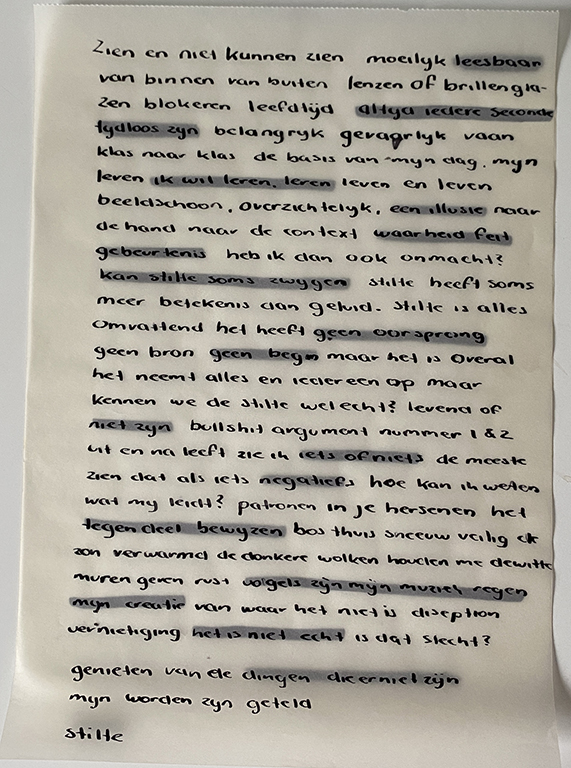 Zien en niet kunnen zien moeilyk leesbaar
van binnen van buiten lenzen of brillengla-
zen blokeren leeftijd altyd iedere seconde
tydloos zyn belangryk gevaarlyk vaan
klas naar klas de basis van myn dag. myn
leven ik wil leren, leren leven en leven
beeldschoon, overzichtelyk, een illusie naar
de hand naar de context waarheid feit
gebeurtenis heb ik dan ook onmacht?
kan stilte soms zwygen stilte heeft soms
meer betekenis dan geluid. stilte is alles
omvattend het heeft geen oorsprong
geen bron geen begin maar het is overal
het neemt alles en iedereen op maar
kennen we de stilte wel echt? levend of
niet zyn bullshit argument nummer 1 & 2
uit en na leeft zie ik iets of niets de meeste
zien dat als iets negatiefs hoe kan ik weten
wat my leidt? patronen in je hersenen het
tegendeel bewyzen bos thuis sneeuw veilig de
zon verwarmd de donkere wolken houden me de witte
muren geven rust vogels zijn mijn muziek regen
mijn creatie van waar het niet is diception
vernietiging het is niet echt is dat slecht?
genieten van de dingen die er niet zijn
mijn worden zyn geteld
stilte